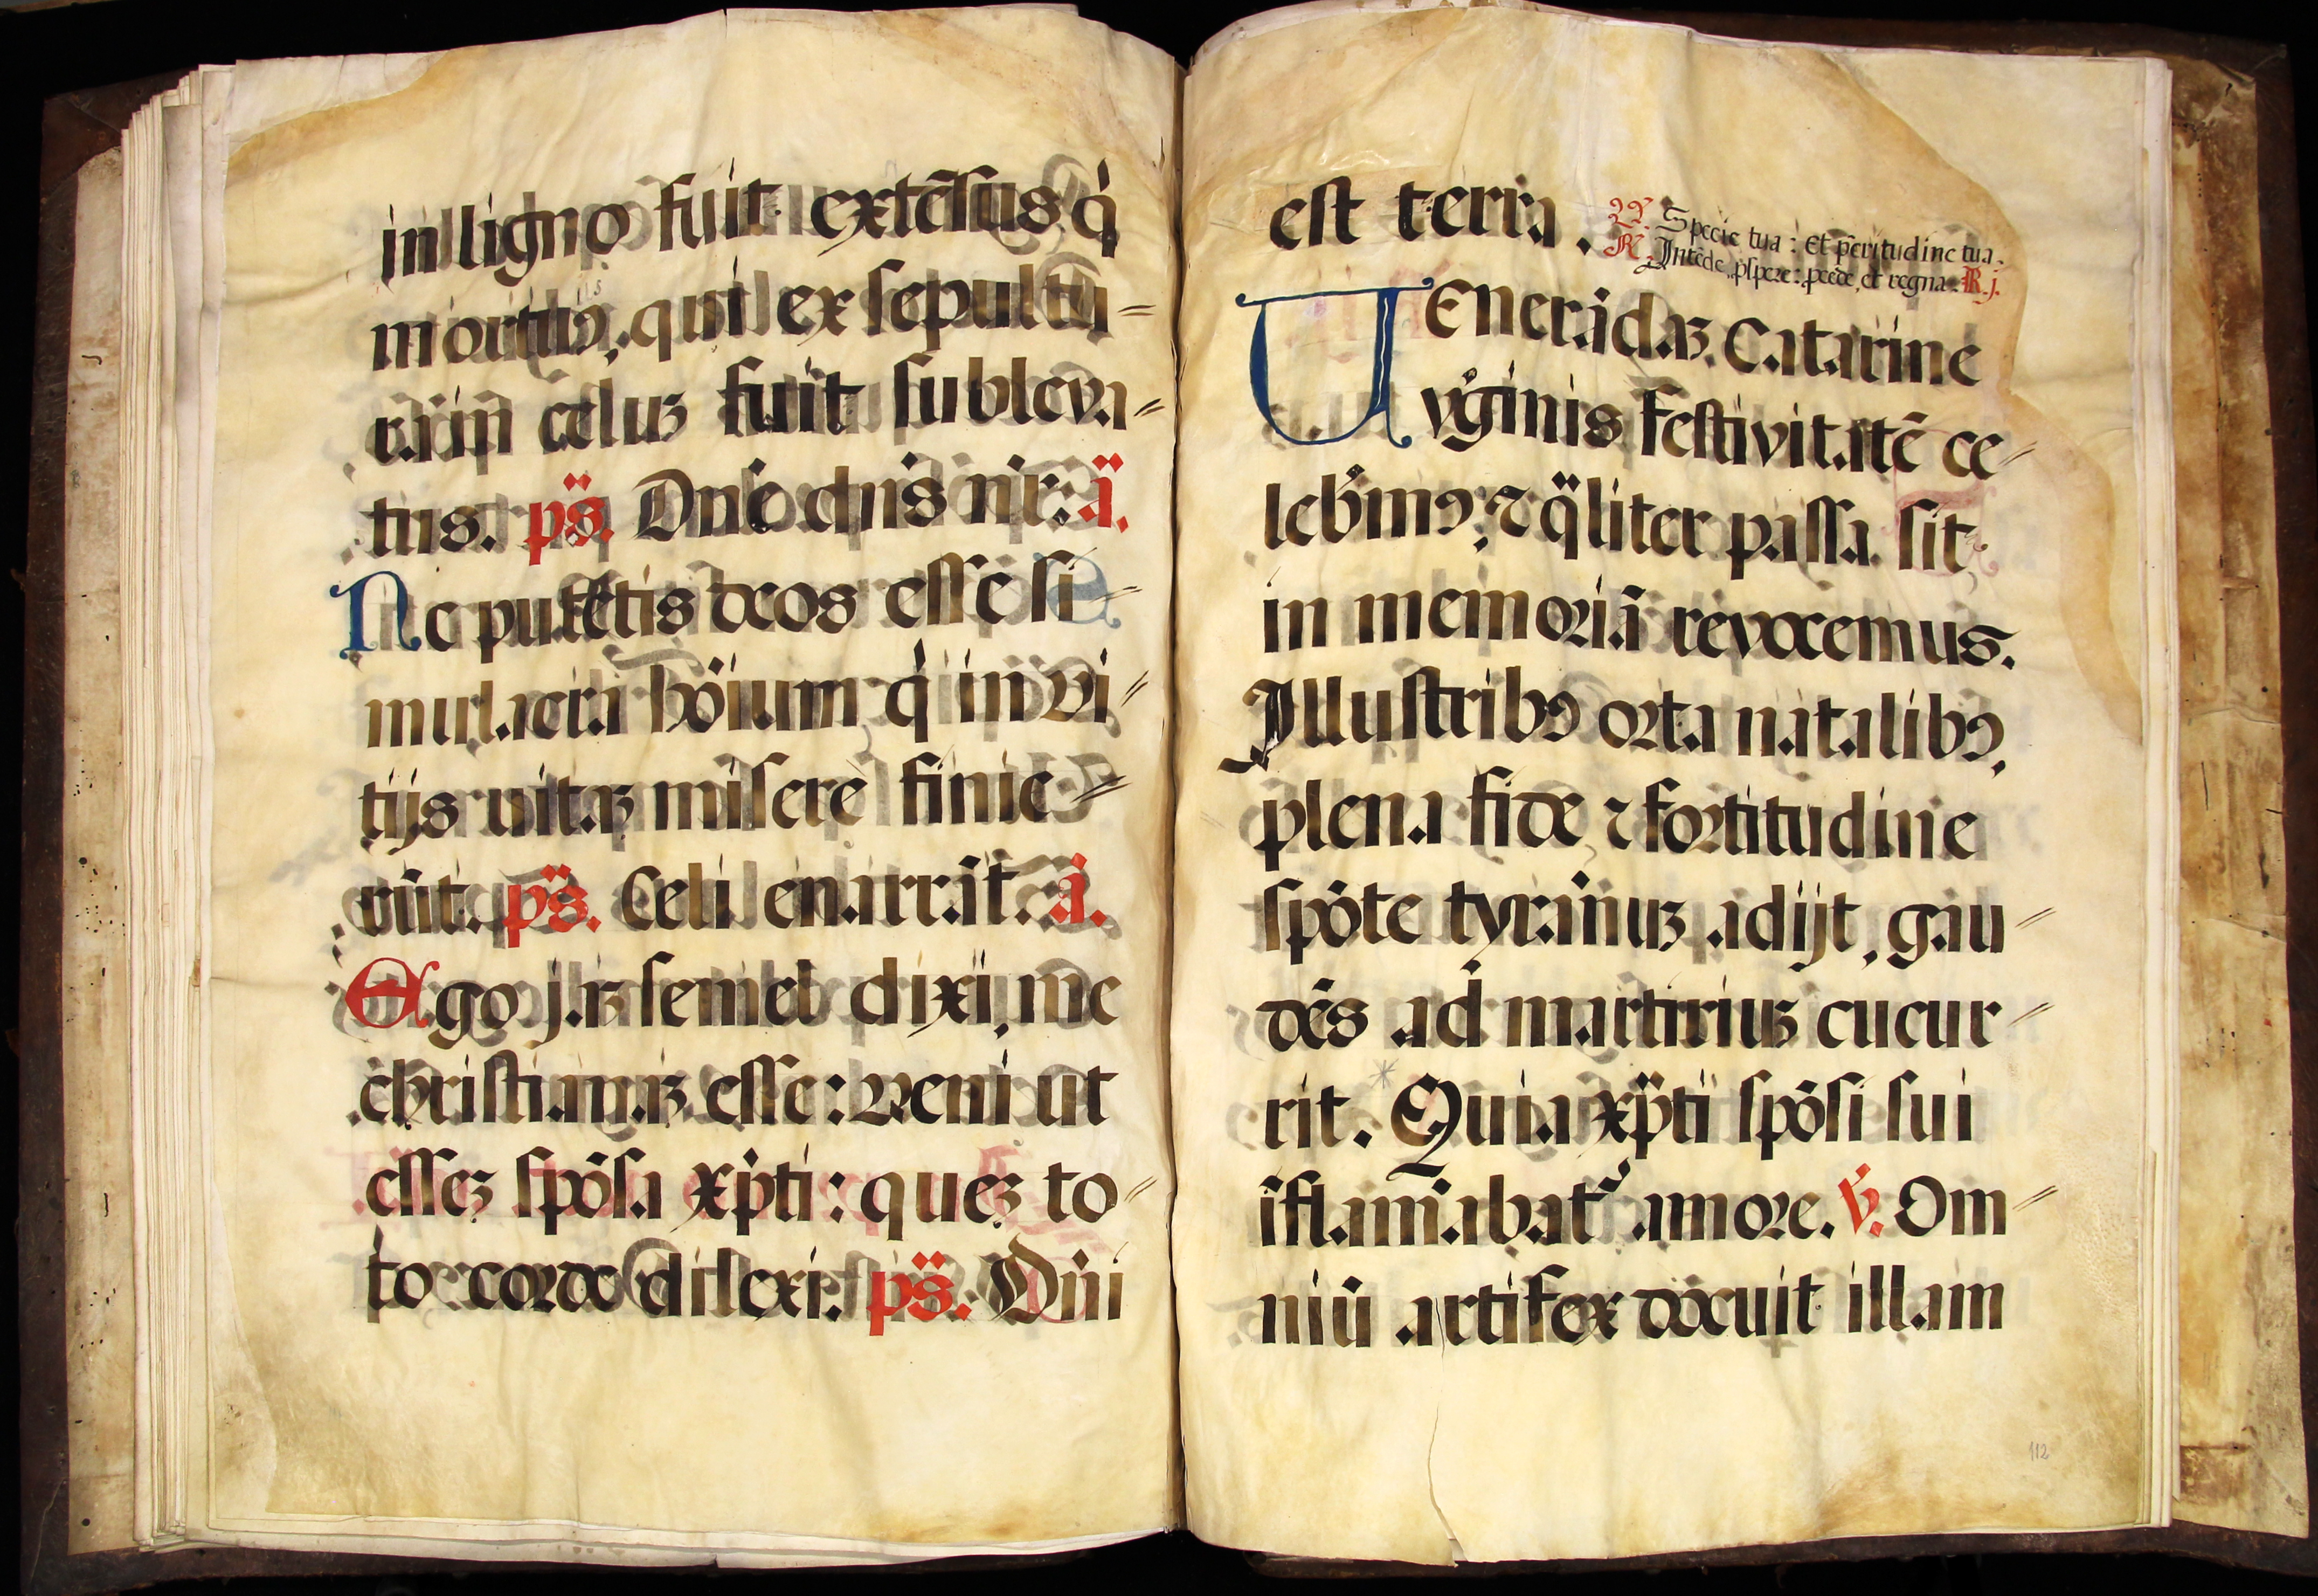 in ligno fuit extēsus q̇
mortuꝰ, qui ex sepultu=
ra in celuʒ fuit subleva=
tus. ps̈. Dn̄e dn̄s nr̄: ä.
Ne putetis deos esse si=
mulacra hōium q̇ in vi=
tijs vitaʒ misere finie=
rūt. ps̈. Celi enarrāt. a.
Ego jaʒ semel dixi, me
christianaʒ esse: veni ut
esseʒ spōsa xp̄ti: queʒ to=
to corde dilexi. ps̈. Dn̄i
est terra. ℣. Specie tua: et pċritudine tua.
℟. Intēde, ꝓspere: ꝓcede, et regna. R. j.
Venerādaʒ Catarine
vġinis festivitatē ce=
lebṙmꝰ, ⁊ q̈liter passa sit
in memoriā revocemus.
Illustribꝰ orta natalibꝰ,
plena fide ⁊ fortitudine
spōte tyrānuʒ adijt, gau=
dēs ad martiriuʒ cucur=
rit. Quia xp̄ti spōsi sui
īflam̄abat᷑ amore. ℣. Om=
niū artifex docuit illam
112